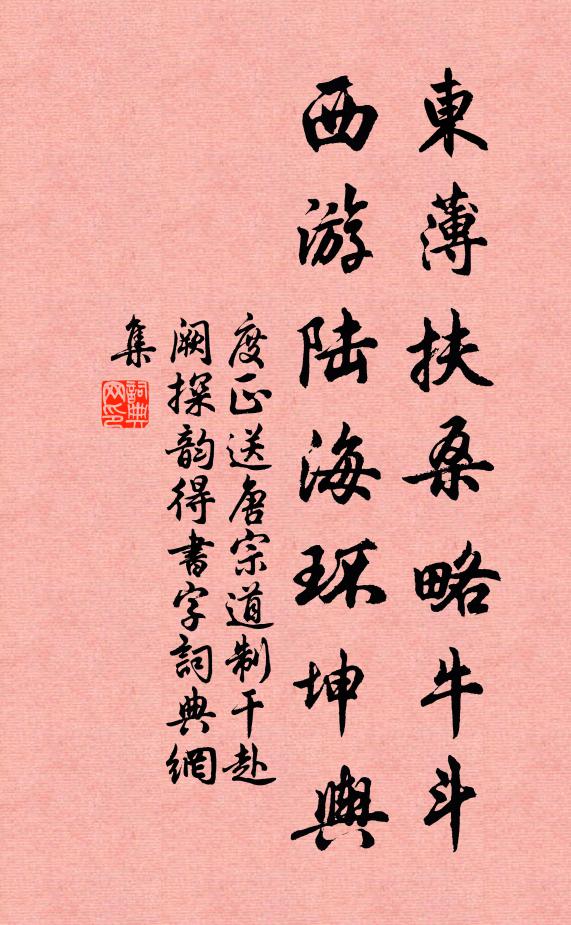 東薄扶桑略牛斗
西游陆海环坤輿
度正送唐宗道制干赴
阙探韵得書字詞典網
集
詞典网印